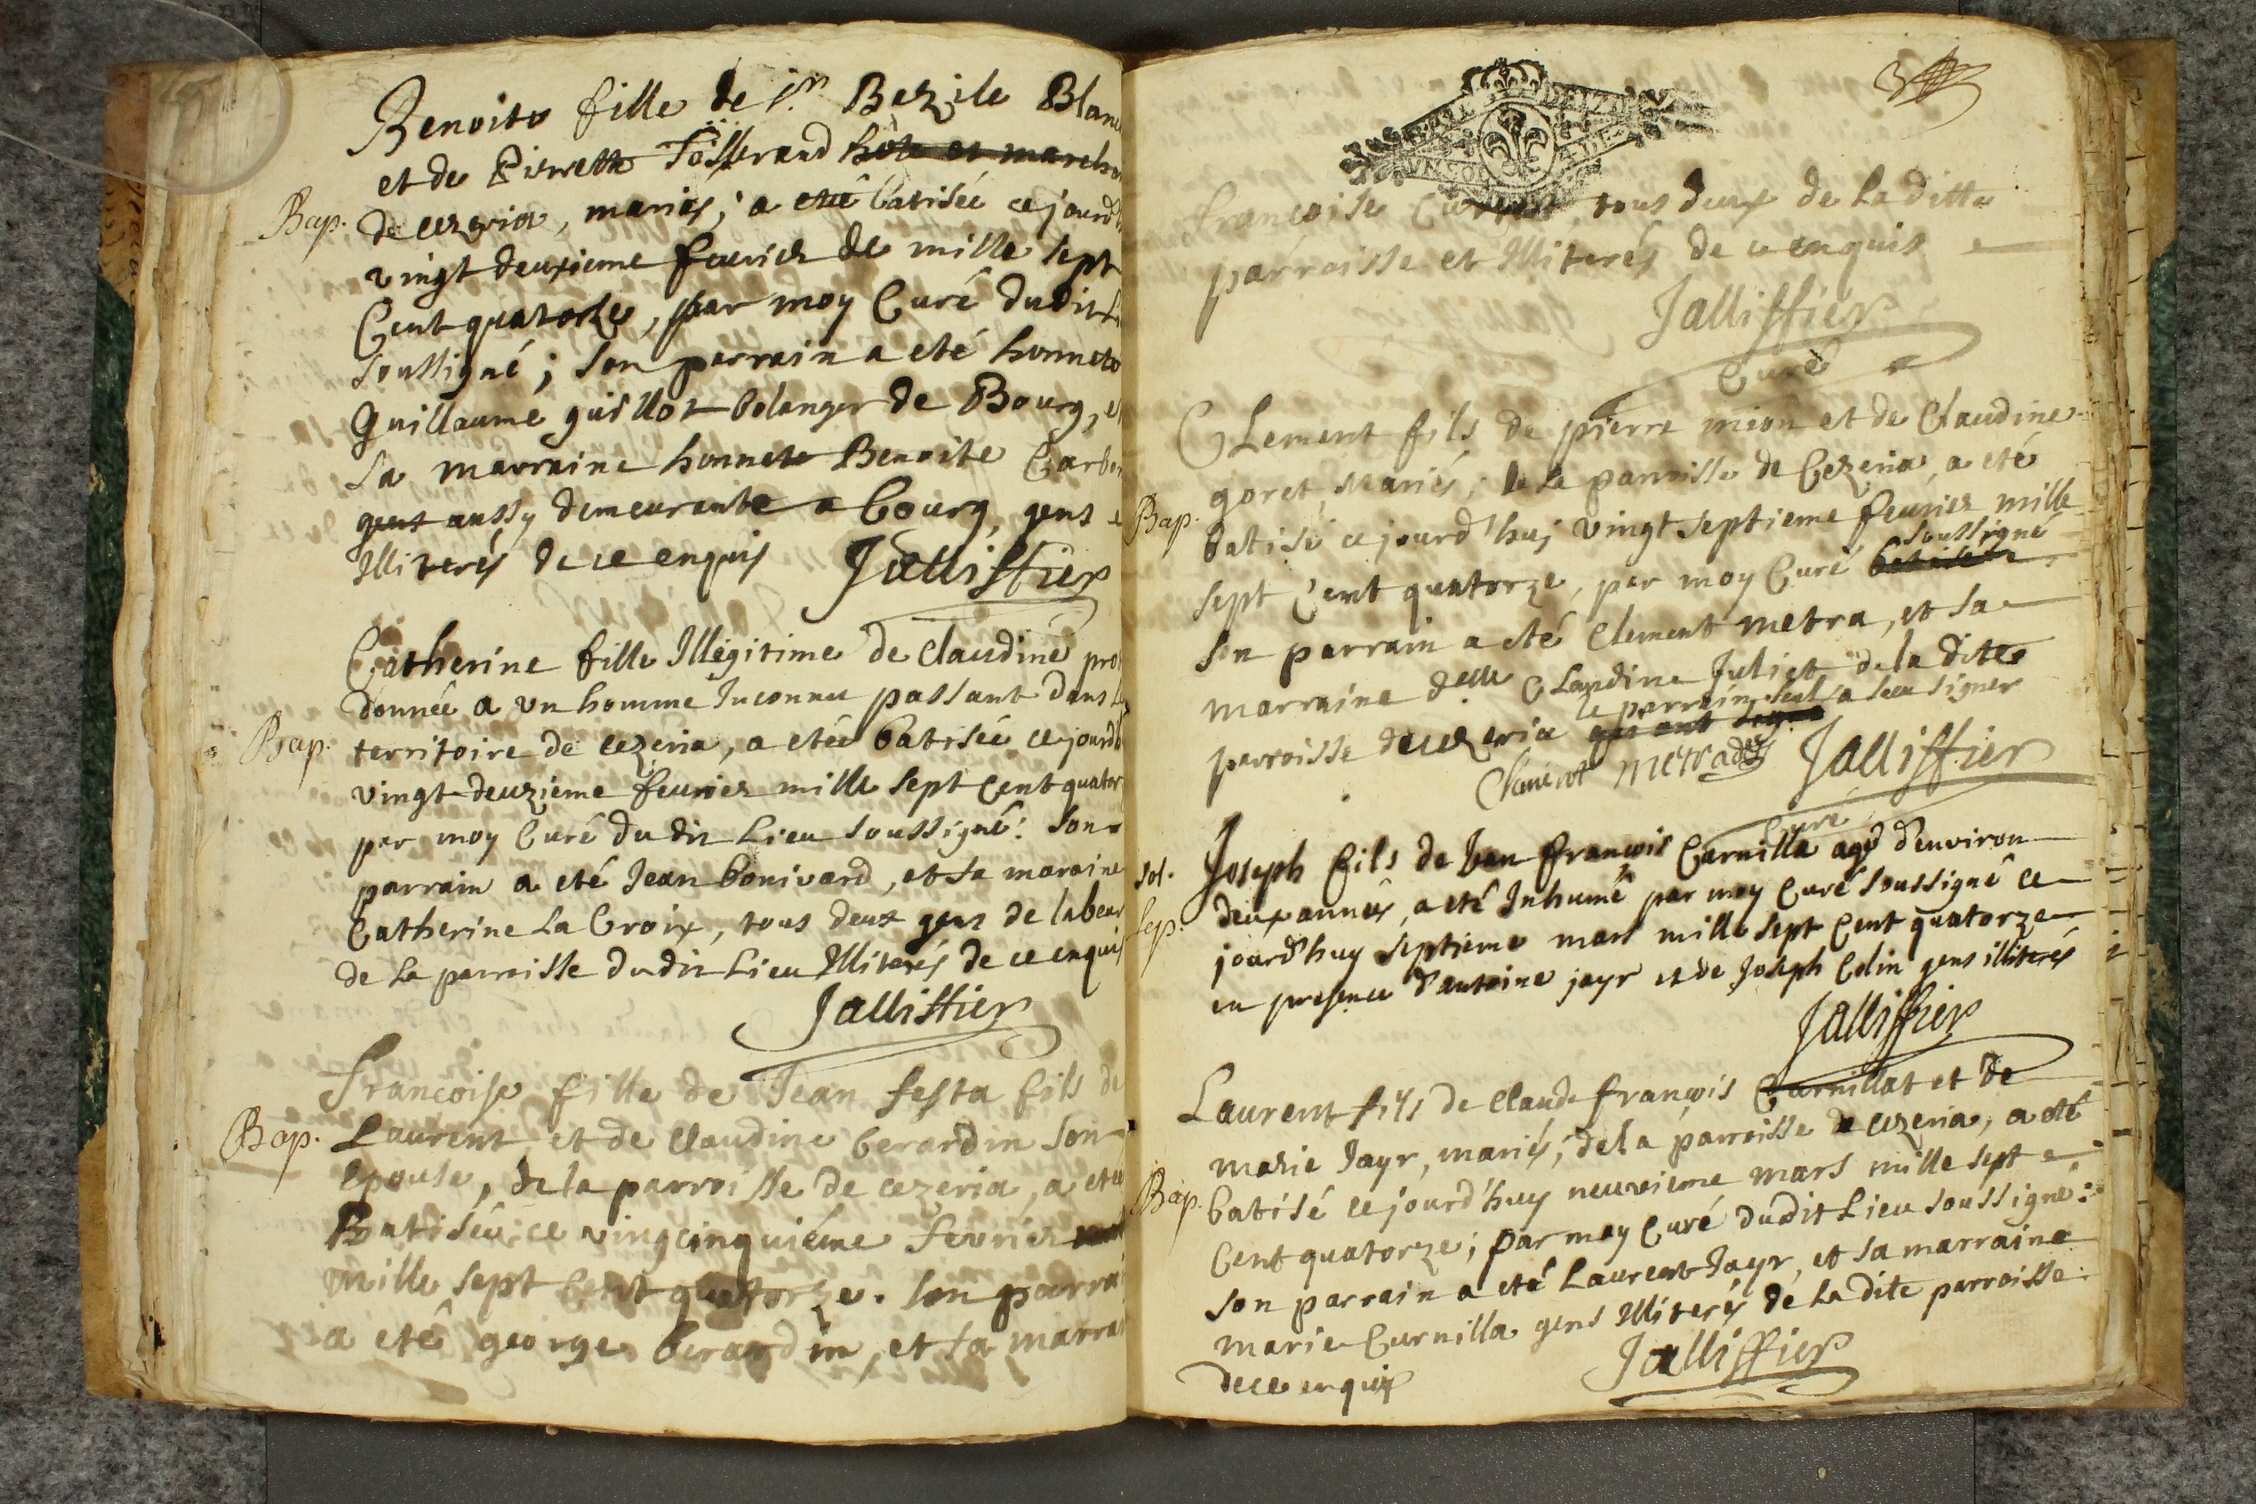 Benoite fille de jn Bezile Blan
et de Pierrette Tosserand hote et marcha
Bap. de cezeria, mariés; a eté batisée ce jourd'h
vingt deuxieme fevrier de mille sept
Cent quatorze, par moy Curé dudit L
soussigné; son parrain a eté honnete
Guillaume guillot bolanger de Bourg, e
sa marraine honnete Benoite Carbon
gens aussy demeurante a bourg, gens
Illiterés de ce enquis Jalliffier
Catherine fille Illegitime de Claudine pro
donnée a un homme Inconnu passant dans l
Bap. territoire de cezeria, a etée batisée ce jourd'h
vingt-deuzieme feurier mille sept Cent quator
par moy Curé du dit Lieu soussigné: son
parrain a eté Jean bonivard, et sa maraine
Catherine La Croix, tous deux gens de labeur
de la parroisse du dit Lieu Illiterés de ce enquis
Jalliffier
Francoise fille de Jean festa fils de
Bap. Laurent, et de Claudine berardin son
epouse, de la parroisse de cezeria, a etée
Batisée ce vingcinquiéme fevrier
mille sept Cent quatorze. son parrai
a eté george berardin, et sa marra
francoise tous deux de la ditte
parroisse et Illiterés de ce enquis
Jalliffier
Curé
CLement fils de pierre mion et de Claudine
goret, Mariés; de la parroisse de Cezeria, a eté
Bap. batisé ce jourd'huj vingt septieme feurier mille
sept Cent quatorze, par moy Curé soussigné
son parrain a eté Clement metra, et sa
marraine delle CLaudine Juliet de la dite
parroisse de cezeria qui ont signé le parrain seul a sceu signer
Clement metra Jalliffier
Curé
sol. Joseph fils de Jean françois Carnilla agé d'environ
sep. deux années, a eté Inhumé par moy Curé soussigné ce
jourd'huy septieme mars mille sept Cent quatorze
en presence d'antoine jayr et de Joseph Colin gens illiterés
Jalliffier
Laurent fils de Claude françois Curnillat et de
marie Jayr, mariés; de la parroisse de cezeria, a eté
Bap. batisé ce jourd'huy neuvieme mars mille sept
Cent quatorze; par moy Curé dudit Lieu soussigné:
son parrain a eté Laurent Jayr, et sa marraine
marie Curnilla gens Illiterés de la dite parroisse
de ce enquis Jalliffier